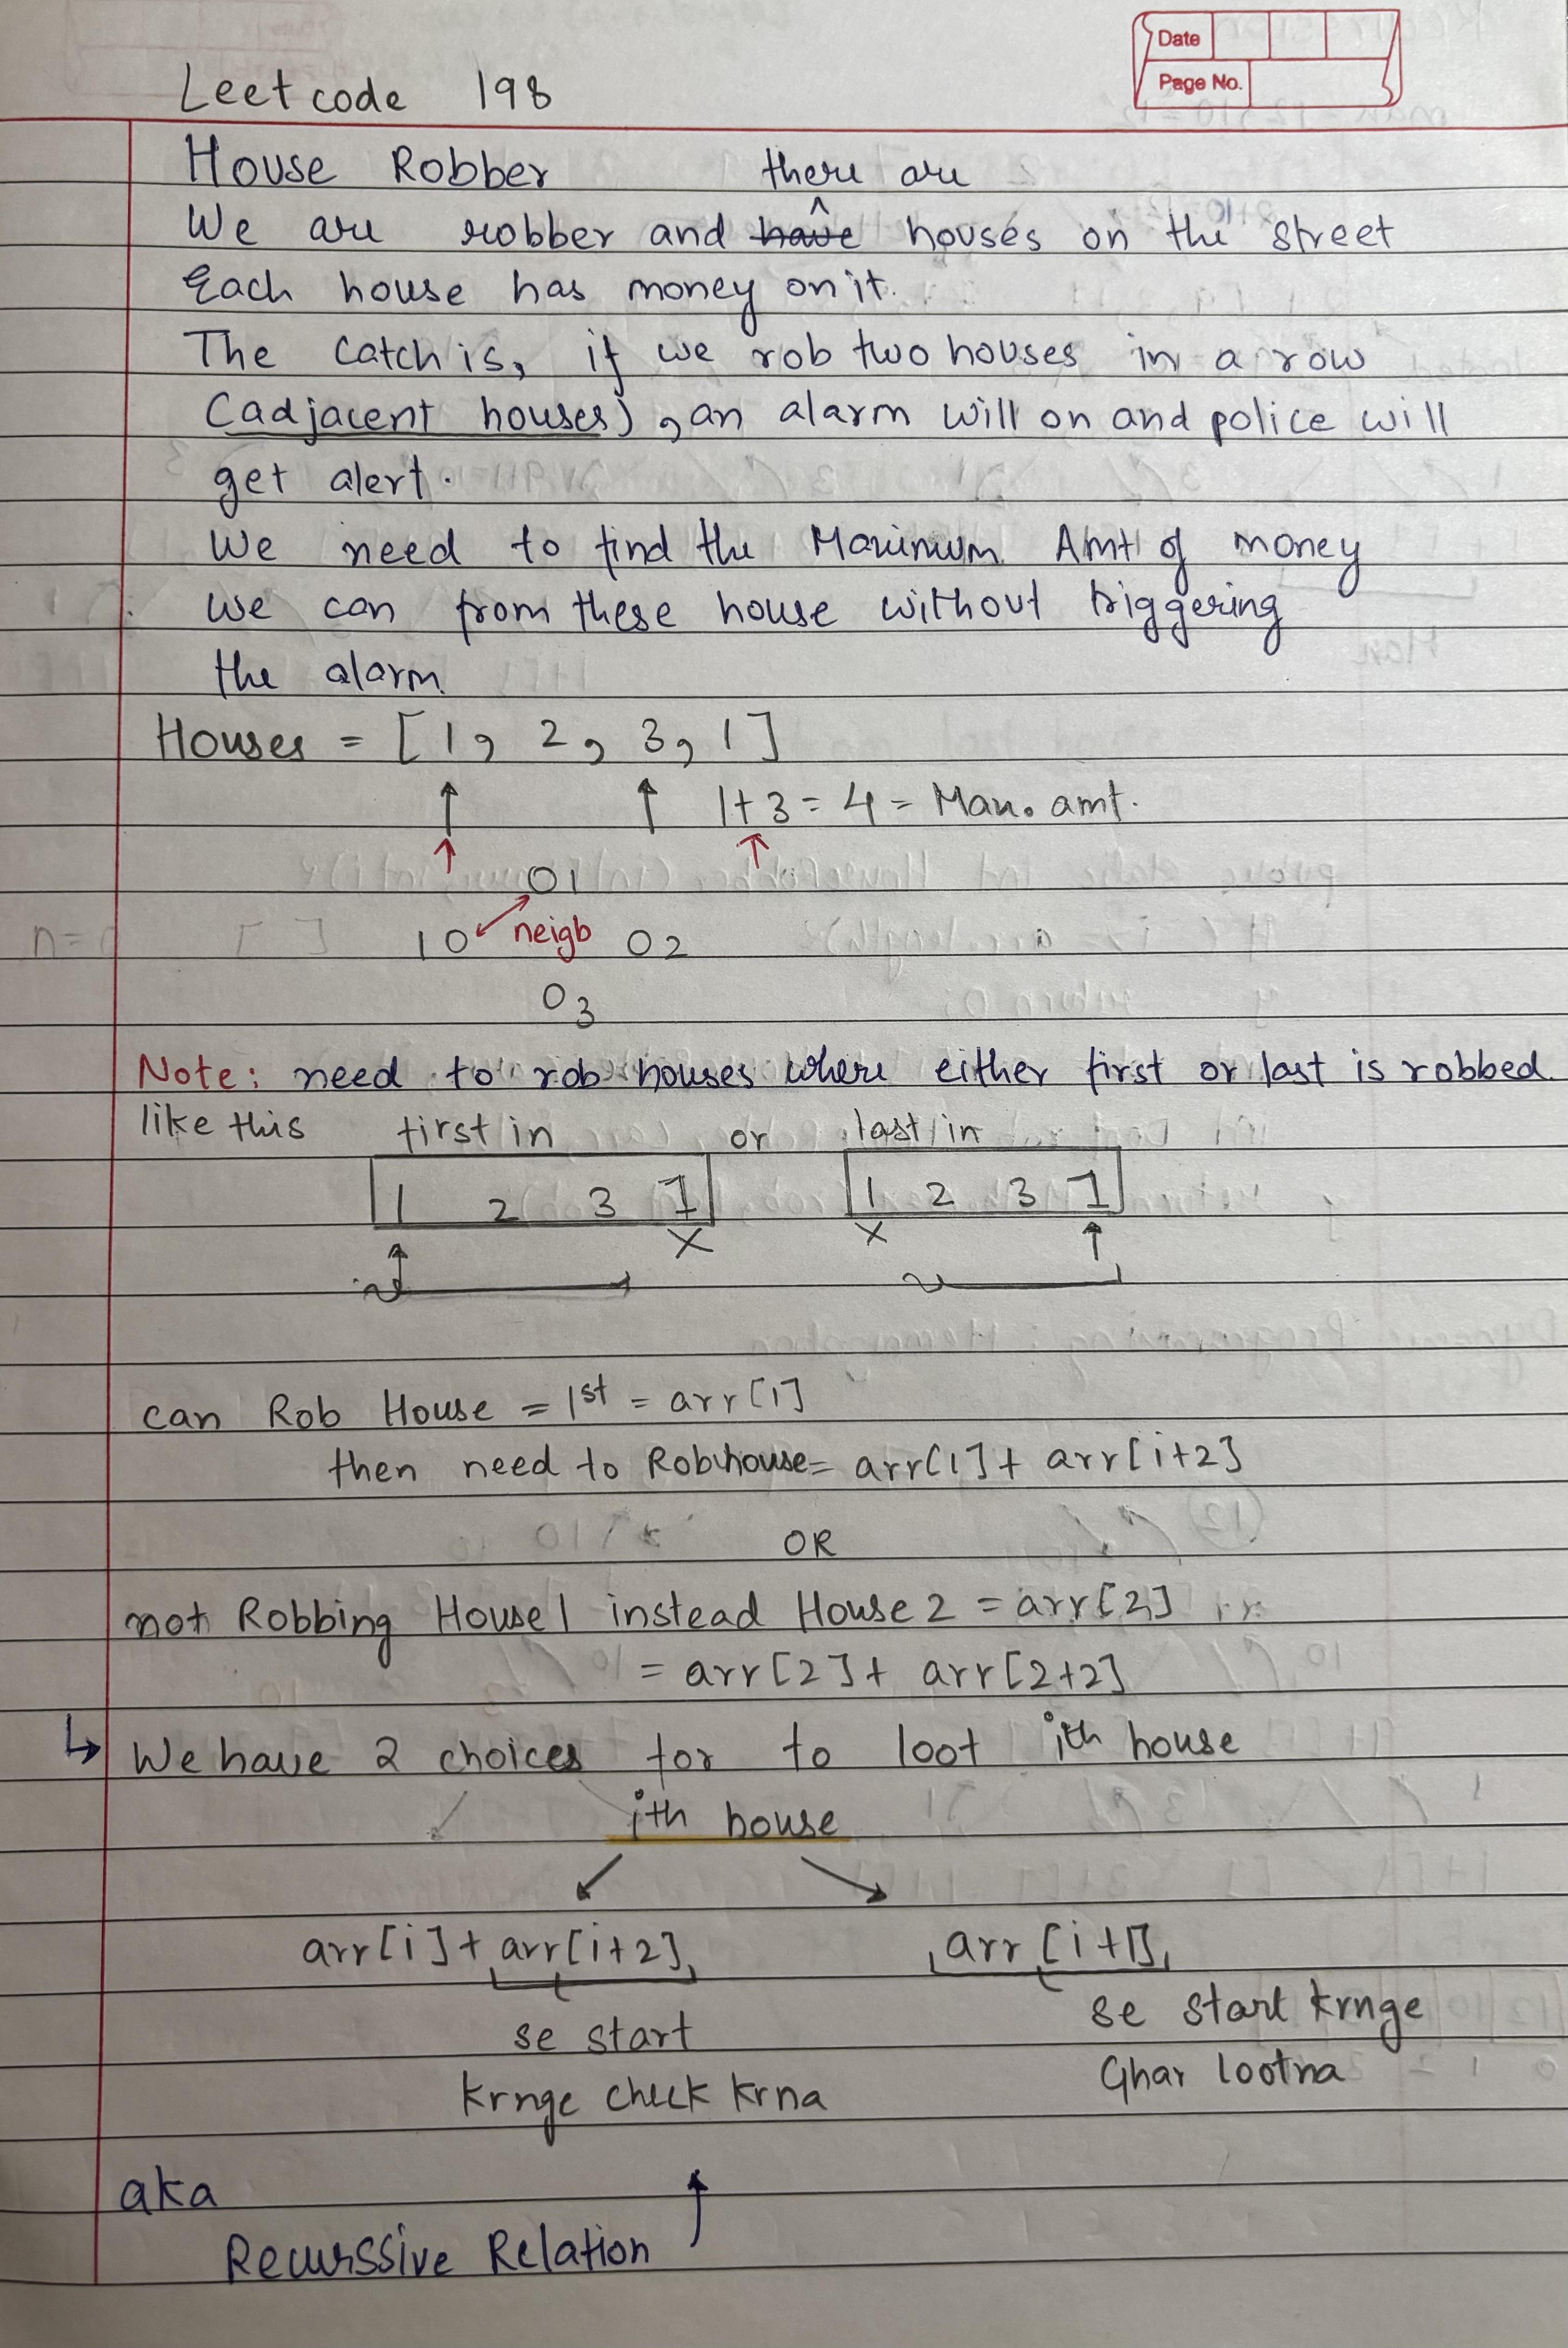 Date
Page No.
Leetcode 198
House Robber there are
We are robber and have houses on the street
Each house has money on it.
The catch is, if we rob two houses in a row
(adjacent houses), an alarm will on and police will
get alert.
We need to find the Maximum Amt of money
we can from these house without triggering
the alarm
Houses = [1, 2, 3, 1]
↑ ↑ 1+3 = 4 = Max. amt.
↑ ↑
O1
1O neigb O2
O3
Note: need to rob houses where either first or last is robbed.
like this first in or last in
1 2 3 1 1 2 3 1
X X ↑
↑
can Rob House = 1st = arr[1]
then need to Rob house = arr[1] + arr[i+2]
OR
not Robbing House 1 instead House 2 = arr[2]
= arr[2] + arr[2+2]
↳ We have 2 choices for to loot ith house
ith house
arr[i] + arr[i+2] arr[i+1]
se start se start krnge
krnge check krna Ghar lootna
aka
Recurssive Relation ↑